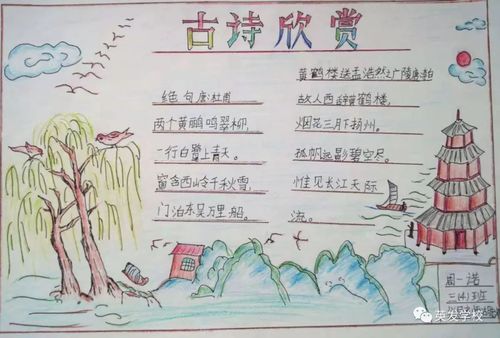 古诗欣赏
绝句 唐:杜甫
两个黄鹂鸣翠柳,
一行白鹭上青天。
窗含西岭千秋雪,
门泊东吴万里船。
黄鹤楼送孟浩然之广陵 唐:李白
故人西辞黄鹤楼,
烟花三月下扬州。
孤帆远影碧空尽。
惟见长江天际
流。
周一诺
三(4)班
英发学校